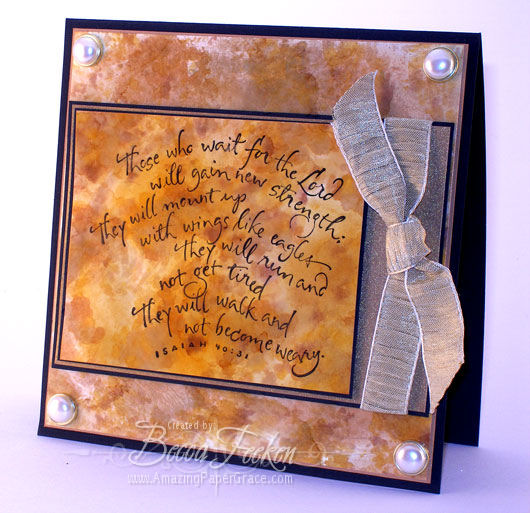 Those who wait for the Lord
will gain new strength:
They will mount up
with wings like eagles
They will run and
not get tired
They will walk and
not become weary.
ISAIAH 40:31
Created by:
Becca Feeken
www.AmazingPaperGrace.com